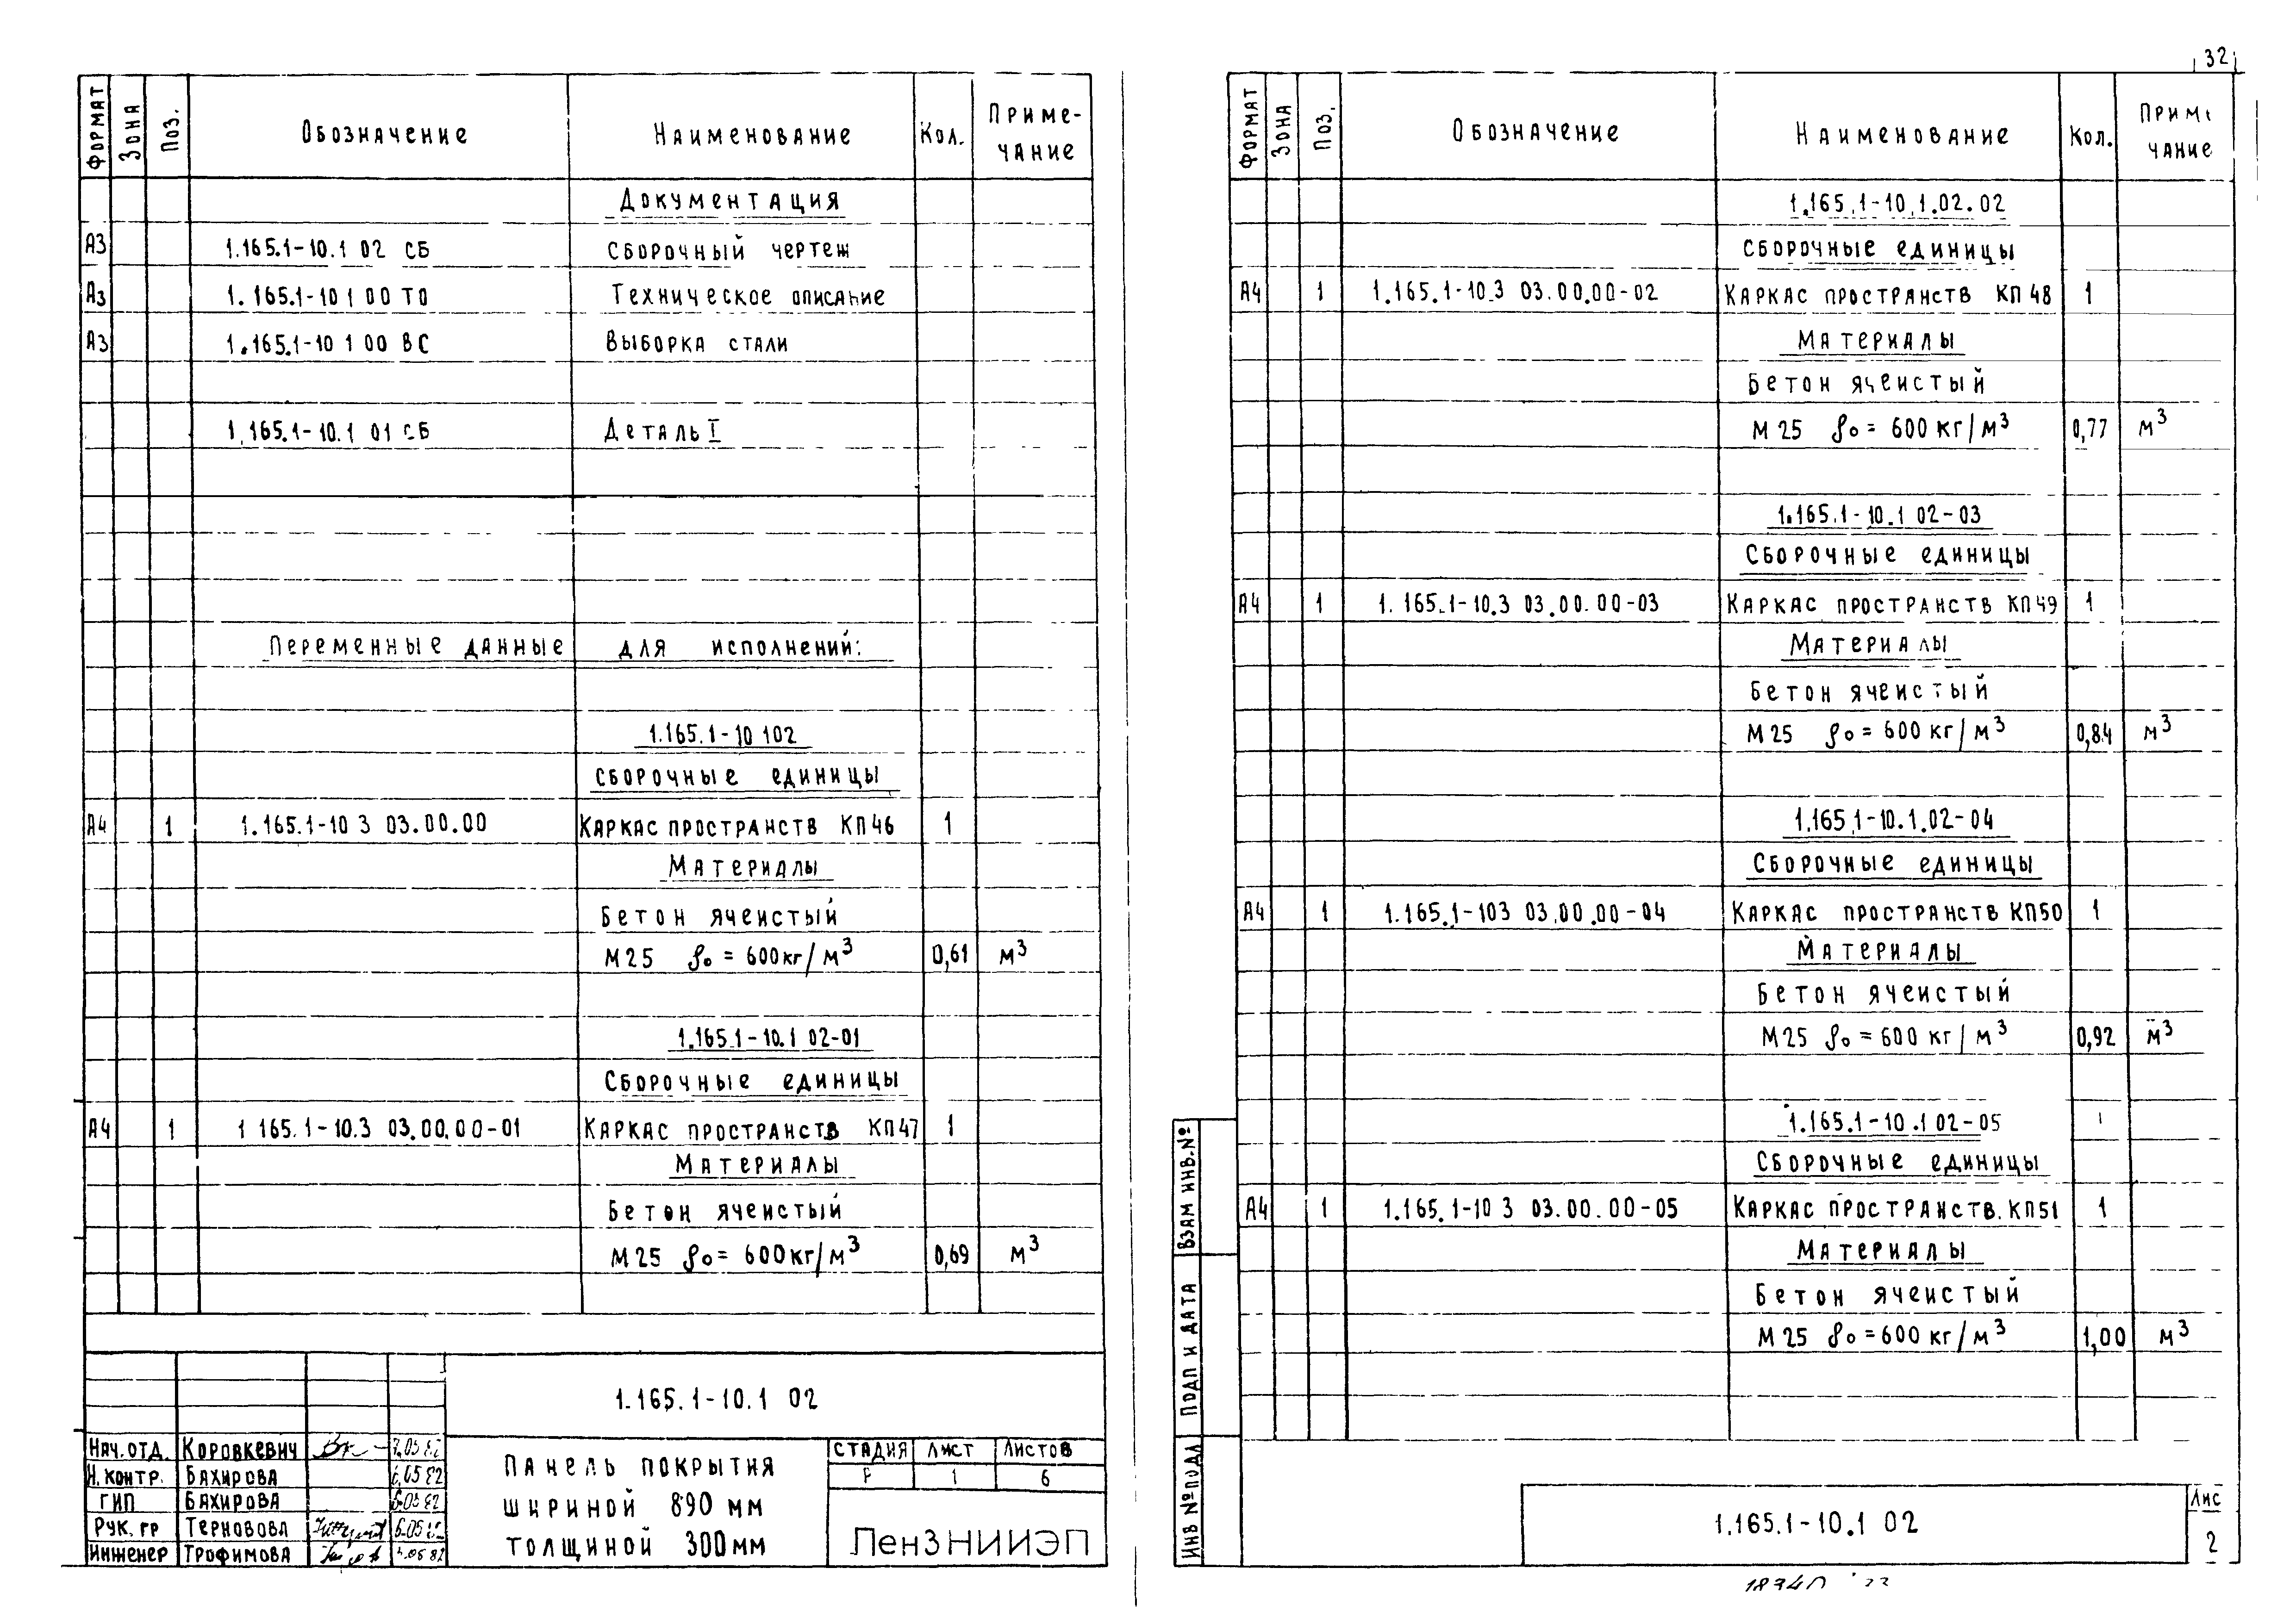 32
ФОРМАТ ЗОНА ПОЗ. ОБОЗНАЧЕНИЕ НАИМЕНОВАНИЕ КОЛ. ПРИМЕ-
ЧАНИЕ
ДОКУМЕНТАЦИЯ
А3 1.165.1-10.1 02 СБ СБОРОЧНЫЙ ЧЕРТЕЖ
А3 1.165.1-10 1 00 ТО ТЕХНИЧЕСКОЕ ОПИСАНИЕ
А3 1.165.1-10 1 00 ВС ВЫБОРКА СТАЛИ
1.165.1-10.1 01 СБ ДЕТАЛЬ I
ПЕРЕМЕННЫЕ ДАННЫЕ ДЛЯ ИСПОЛНЕНИЙ:
1.165.1-10 102
СБОРОЧНЫЕ ЕДИНИЦЫ
А4 1 1.165.1-10 3 03.00.00 КАРКАС ПРОСТРАНСТВ КП46 1
МАТЕРИАЛЫ
БЕТОН ЯЧЕИСТЫЙ
М25 ρо = 600кг/м³ 0,61 м³
1.165.1-10.1 02-01
СБОРОЧНЫЕ ЕДИНИЦЫ
А4 1 1 165.1-10.3 03.00.00-01 КАРКАС ПРОСТРАНСТВ КП47 1
МАТЕРИАЛЫ
БЕТОН ЯЧЕИСТЫЙ
М25 ρо = 600кг/м³ 0,69 м³
1.165.1-10.1 02
НАЧ.ОТД. КОРОВКЕВИЧ
Н.КОНТР. БАХИРОВА 6.05 82
ГИП БАХИРОВА 6.05 82
РУК. ГР ТЕРНОВОВА
ИНЖЕНЕР ТРОФИМОВА
ПАНЕЛЬ ПОКРЫТИЯ
ШИРИНОЙ 890 мм
ТОЛЩИНОЙ 300мм
СТАДИЯ ЛИСТ ЛИСТОВ
Р 1 6
ЛенЗНИИЭП
ФОРМАТ ЗОНА ПОЗ. ОБОЗНАЧЕНИЕ НАИМЕНОВАНИЕ КОЛ. ПРИМЕ
ЧАНИЕ
1.165.1-10.1.02.02
СБОРОЧНЫЕ ЕДИНИЦЫ
А4 1 1.165.1-10.3 03.00.00-02 КАРКАС ПРОСТРАНСТВ КП 48 1
МАТЕРИАЛЫ
БЕТОН ЯЧЕИСТЫЙ
М 25 ρо = 600 кг/м³ 0,77 м³
1.165.1-10.1 02-03
СБОРОЧНЫЕ ЕДИНИЦЫ
А4 1 1.165.1-10.3 03.00.00-03 КАРКАС ПРОСТРАНСТВ КП49 1
МАТЕРИАЛЫ
БЕТОН ЯЧЕИСТЫЙ
М 25 ρо = 600 кг/м³ 0,84 м³
1.165.1-10.1.02-04
СБОРОЧНЫЕ ЕДИНИЦЫ
А4 1 1.165.1-103 03.00.00-04 КАРКАС ПРОСТРАНСТВ КП50 1
МАТЕРИАЛЫ
БЕТОН ЯЧЕИСТЫЙ
М25 ρо = 600 кг/м³ 0,92 м³
1.165.1-10.1 02-05
СБОРОЧНЫЕ ЕДИНИЦЫ
А4 1 1.165.1-10 3 03.00.00-05 КАРКАС ПРОСТРАНСТВ. КП51 1
МАТЕРИАЛЫ
БЕТОН ЯЧЕИСТЫЙ
М 25 ρо = 600 кг/м³ 1,00 м³
ВЗАМ ИНВ.№
ПОДП И ДАТА
ИНВ №ПОДЛ
1.165.1-10.1 02
ЛИС
2